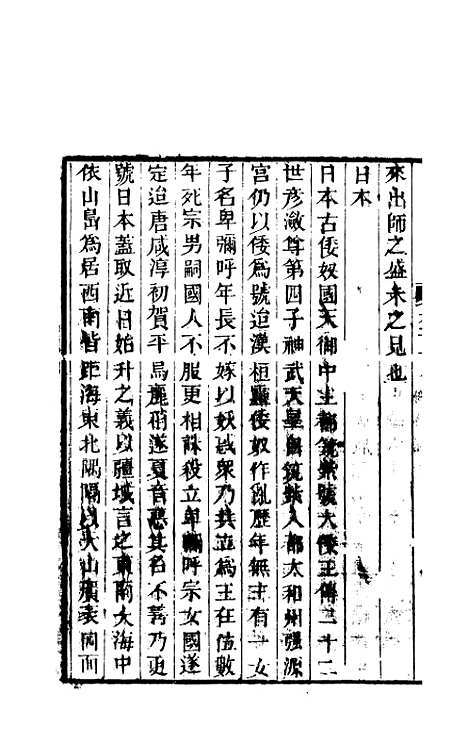 來出師之盛未之見也
日本
日本古倭奴國天御中主都筑紫號大倭王傳三十二
世彥瀲尊第四子神武天皇自筑紫入都太和州强源
宮仍以倭爲號迨漢桓靈倭奴作亂歷年無主有一女
子名卑彌呼年長不嫁以妖惑衆乃共立爲主在位數
年死宗男嗣國人不服更相誅殺立卑彌呼宗女國遂
定迨唐咸淳初賀平 高麗稍遂夏音惡其名不善乃更
號日本蓋取近日始升之義以疆域言之東南大海中
依山島爲居西南皆距海東北隅隔以大山廣袤四面